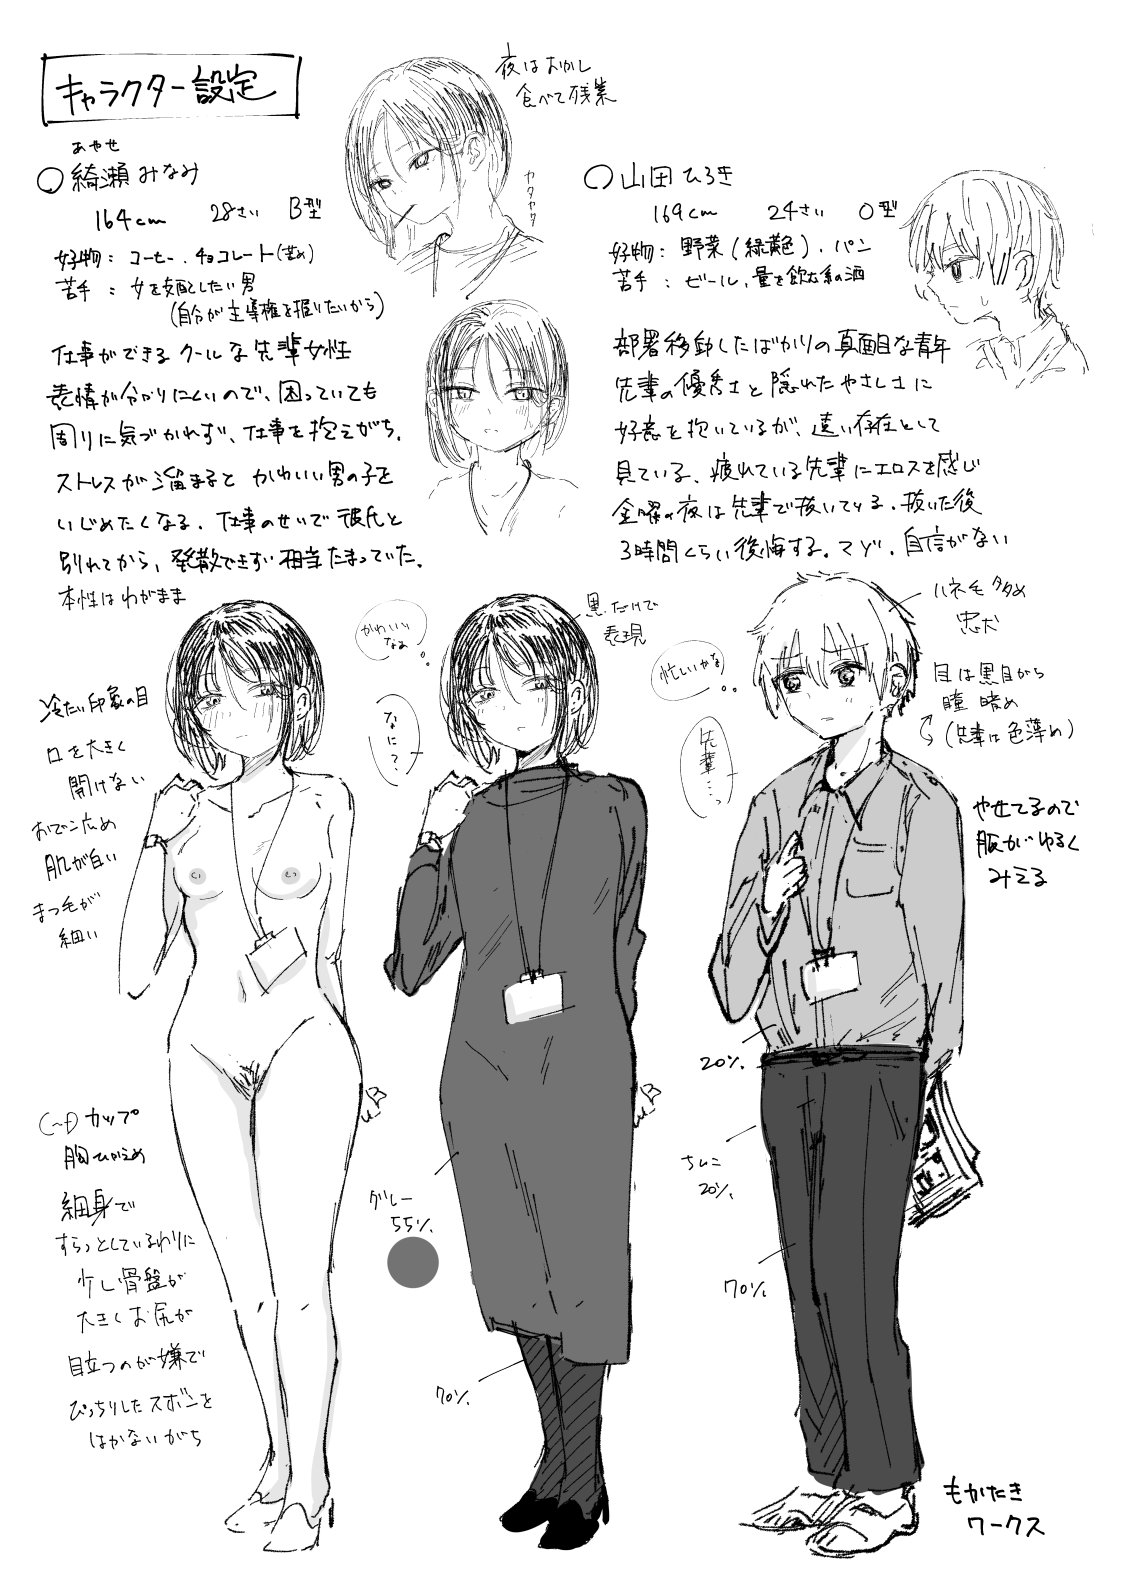 キャラクター設定
夜はおかし
食べて残業
カタカタ
あやせ
○綺瀬みなみ
164cm 28さい B型
好物：コーヒー、チョコレート(苦め)
苦手：女を支配したい男
(自分が主導権を握りたいから)
仕事ができるクールな先輩女性
表情が分かりにくいので、困っていても
周りに気づかれず、仕事を抱えがち。
ストレスが溜まるとかわいい男の子を
いじめたくなる。仕事のせいで彼氏と
別れてから、発散できずに相当たまっていた。
本性はわがまま
○山田ひろき
169cm 24さい O型
好物：野菜(緑黄色)、パン
苦手：ビール、量を飲む系の酒
部署移動したばかりの真面目な青年
先輩の優秀さと隠れたやさしさに
好意を抱いているが、遠い存在として
見ている。疲れている先輩にエロスを感じ
金曜の夜は先輩で抜いている。抜いた後
3時間くらい後悔する。マゾ。自信がない
冷たい印象の目
口を大きく
開けない
おでこ広め
肌が白い
まつ毛が
細い
カップ
胸ひかえめ
細身で
すらっとしているわりに
少し骨盤が
大きくお尻が
目立つのが嫌で
ぴっちりしたズボンを
はかないがち
かわいい
なぁ
なに？
黒だけで
表現
グレー
55%
70%
忙しいかな
先輩…っ
ハネ毛タタめ
忠犬
目は黒目から
瞳暗め
(先輩は色薄め)
やせてるので
服がゆるく
みえる
20%
ちんこ
20%
70%
もかたき
ワークス